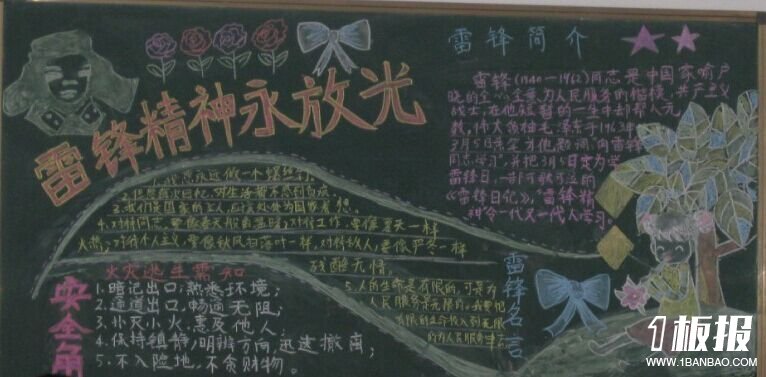 雷锋精神永放光
雷锋简介
雷锋(1940—1962)同志是中国家喻户
晓的全心全意为人民服务的楷模，共产主义
战士，在他短暂的一生中却帮人无
数，伟大领袖毛泽东于1963年
3月5日亲定才他题词"向雷锋
同志学习"，并把3月5日定为学
雷锋日，一首可歌可泣的
《雷锋日记》，"雷锋精
神令一代又一代人学习。
我愿永远做一个螺丝钉
3.我们是国家的主人，应该处处为国家着想。
4.对待同志，要像春天般的温暖；对待工作，要像夏天一样
火热；对待个人主义，要像秋风扫落叶一样，对待敌人，要像严冬一样
残酷无情。
5.人的生命是有限的，可是为
人民服务是无限的，我要把
有限的生命投入到无限
的为人民服务中去
雷锋名言
安全角
火灾逃生需知
1.暗记出口，熟悉环境；
2.通道出口，畅通无阻；
3.扑灭小火，惠及他人；
4.保持镇静，明辨方向，迅速撤离；
5.不入险地，不贪财物。
1板报
WWW.1BANBAO.COM